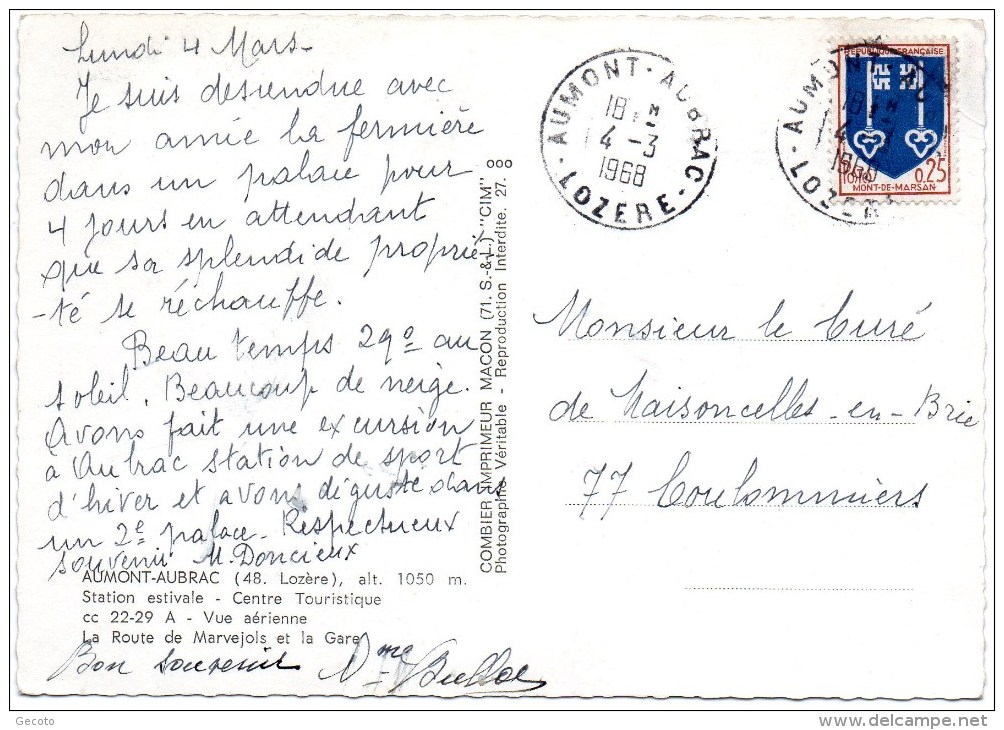 Lundi 4 Mars-
Je suis descendue avec
mon amie la fermière
dans un palace pour
4 jours en attendant
que sa splendide proprié-
-té se réchauffe.
Beau temps 29° au
soleil. Beaucoup de neige.
Avons fait une excursion
à Aubrac station de sport
d'hiver et avons dégusté dans
un 2e palace. Respectueux
souvenir M. Doncieux
AUMONT-AUBRAC (48. Lozère), alt. 1050 m.
Station estivale - Centre Touristique
cc 22-29 A - Vue aérienne
La Route de Marvejols et la Gare
Bon souvenir Mme
COMBIER IMPRIMEUR MACON (71. S.-&-L.) "CIM"
Photographie Véritable - Reproduction Interdite. 27.
ooo
AUMONT-AUBRAC
18H
4 -3
1968
LOZERE
AUMONT-
18H
4
1968
LOZER
REPUBLIQUE FRANÇAISE
0,25
POSTES
MONT-DE-MARSAN
Monsieur le Curé
de Maisoncelles-en-Brie
77 Coulommiers
Gecoto
delcampe.net